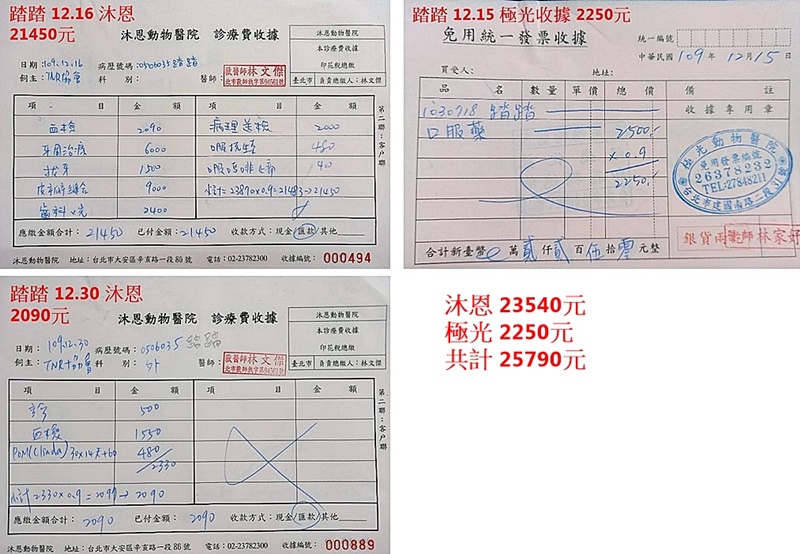 踏踏 12.16 沐恩
21450元
沐恩動物醫院 診療費收據
沐恩動物醫院
本診療費收據
印花稅總繳
臺北市 負責總繳人：林文傑
日期：109.12.16 病歷號碼：0506035 踏踏
飼主：TNR協會 科 別： 醫師：獸醫師林文傑
項 目 金 額 項 目 金 額
血檢 2090 病理送檢 2000
牙周治療 6000 口服抗生 480
拔牙 1500 口服嗎啡 40
皮瓣縫合 9000 小計=23870x0.9=21483→21450
齒科X光 2400
應繳金額合計：21450 已付金額：21450 收款方式：現金/匯款/其他
沐恩動物醫院 地址：台北市大安區辛亥路一段86號 電話：02-23782300 收據編號：000494
第二聯：客戶聯
踏踏 12.15 極光收據 2250元
免用統一發票收據
統一編號
中華民國 109年 12月 15日
買受人： 地址：
品 名 數量 單價 總價 備 註
1030718 踏踏 收據專用章
口服藥 2500.-
x0.9
2250.-
極光動物醫院
免用發票編號
26378232
TEL:27848211
台北市建國南路二段
銀貨兩訖 獸醫師林家妤
合計新臺幣 0 萬 貳 仟 貳 百 伍 拾 零 元整
踏踏 12.30 沐恩
2090元
沐恩動物醫院 診療費收據
沐恩動物醫院
本診療費收據
印花稅總繳
臺北市 負責總繳人：林文傑
日期：109.12.30 病歷號碼：0506035 踏踏
飼主：TNR協會 科 別：外 醫師：獸醫師林文傑
項 目 金 額 項 目 金 額
診 500
血檢 1350
POM(Clinda) 30x14天+60 480
2330
小計=2330x0.9=2097→2090
應繳金額合計：2090 已付金額：2090 收款方式：現金/匯款/其他
沐恩動物醫院 地址：台北市大安區辛亥路一段86號 電話：02-23782300 收據編號：000889
第二聯：客戶聯
沐恩 23540元
極光 2250元
共計 25790元